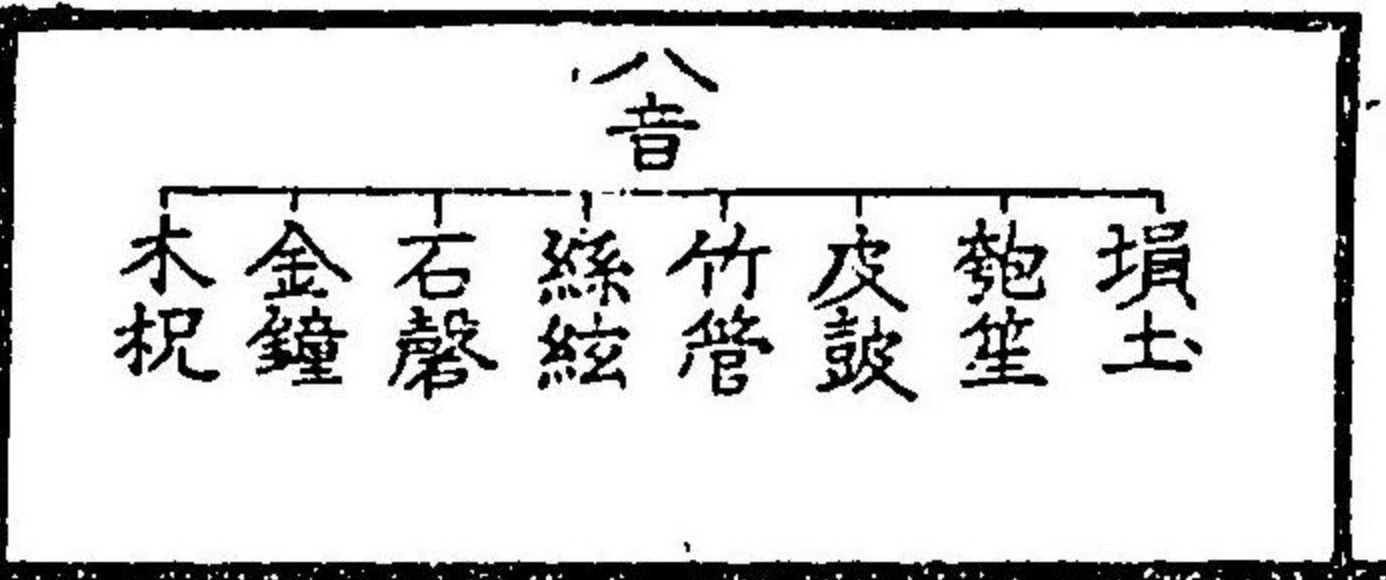 八音
塤圡
匏笙
皮皷
竹管
絲絃
石磬
金鐘
木柷